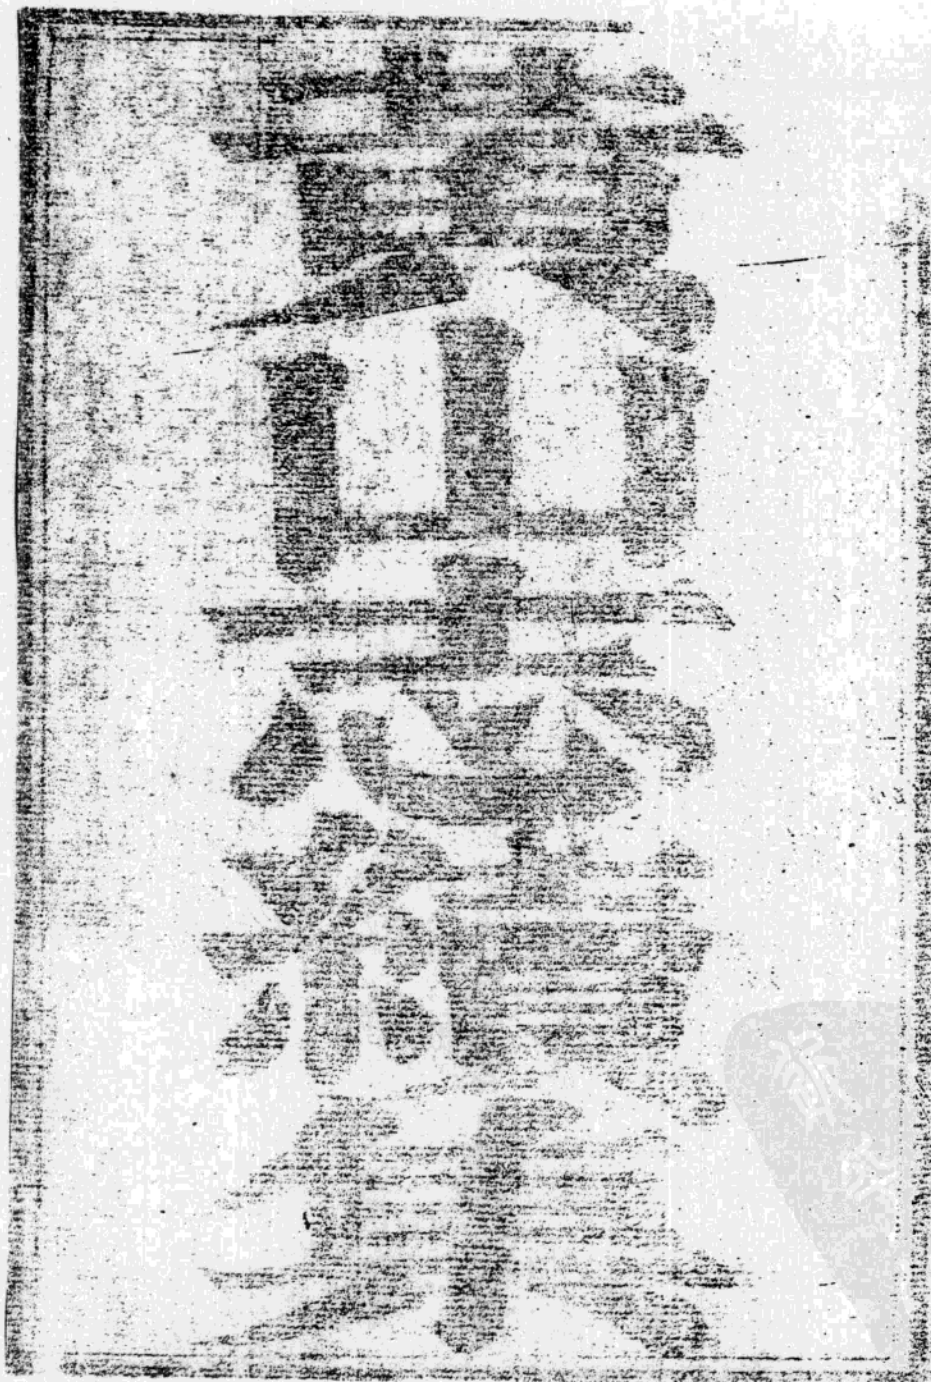 黃山志續集